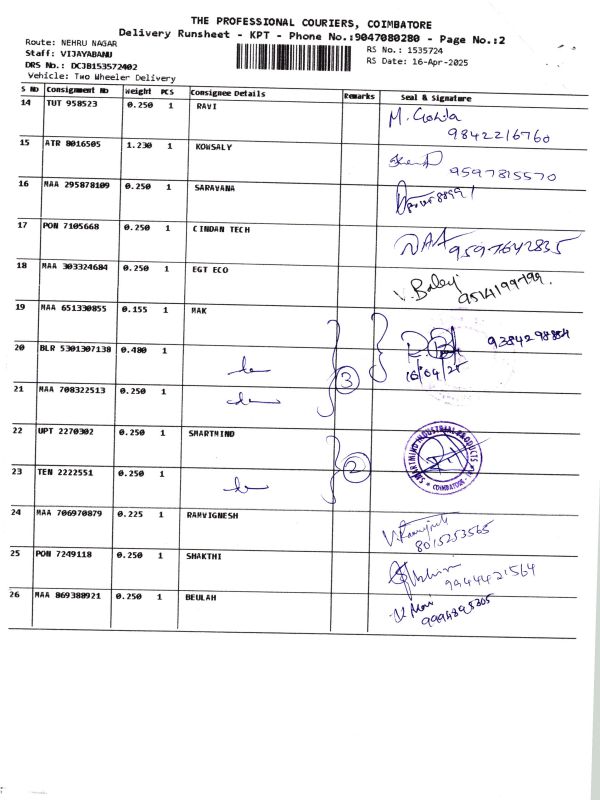 THE PROFESSIONAL COURIERS, COIMBATORE
Delivery Runsheet - KPT - Phone No.:9047080280 - Page No.:2
Route: NEHRU NAGAR
RS No.: 1535724
Staff: VIJAYABANU
RS Date: 16-Apr-2025
DRS No.: DCJB153572402
Vehicle: Two Wheeler Delivery
S No Consignment No Weight PCS Consignee Details Remarks Seal & Signature
14 TUT 958523 0.250 1 RAVI
9842216760
15 ATR 8016505 1.230 1 KOWSALY
9597815570
16 MAA 295878109 0.250 1 SARAVANA
17 PON 7105668 0.250 1 CINDAN TECH
9597642835
18 MAA 303324684 0.250 1 EGT ECO
V. Balaji
9514199799.
19 MAA 651330855 0.155 1 MAK
9384298884
20 BLR 5301307138 0.480 1
16/04/25
3
21 MAA 708322513 0.250 1
22 UPT 2270302 0.250 1 SMARTMIND
SMARTMIND INDUSTRIAL PRODUCTS
COIMBATORE
2
23 TEN 2222551 0.250 1
24 MAA 706970879 0.225 1 RAMVIGNESH
8015253565
25 PON 7249118 0.250 1 SHAKTHI
9944421564
26 MAA 869380921 0.250 1 BEULAH
9994895305